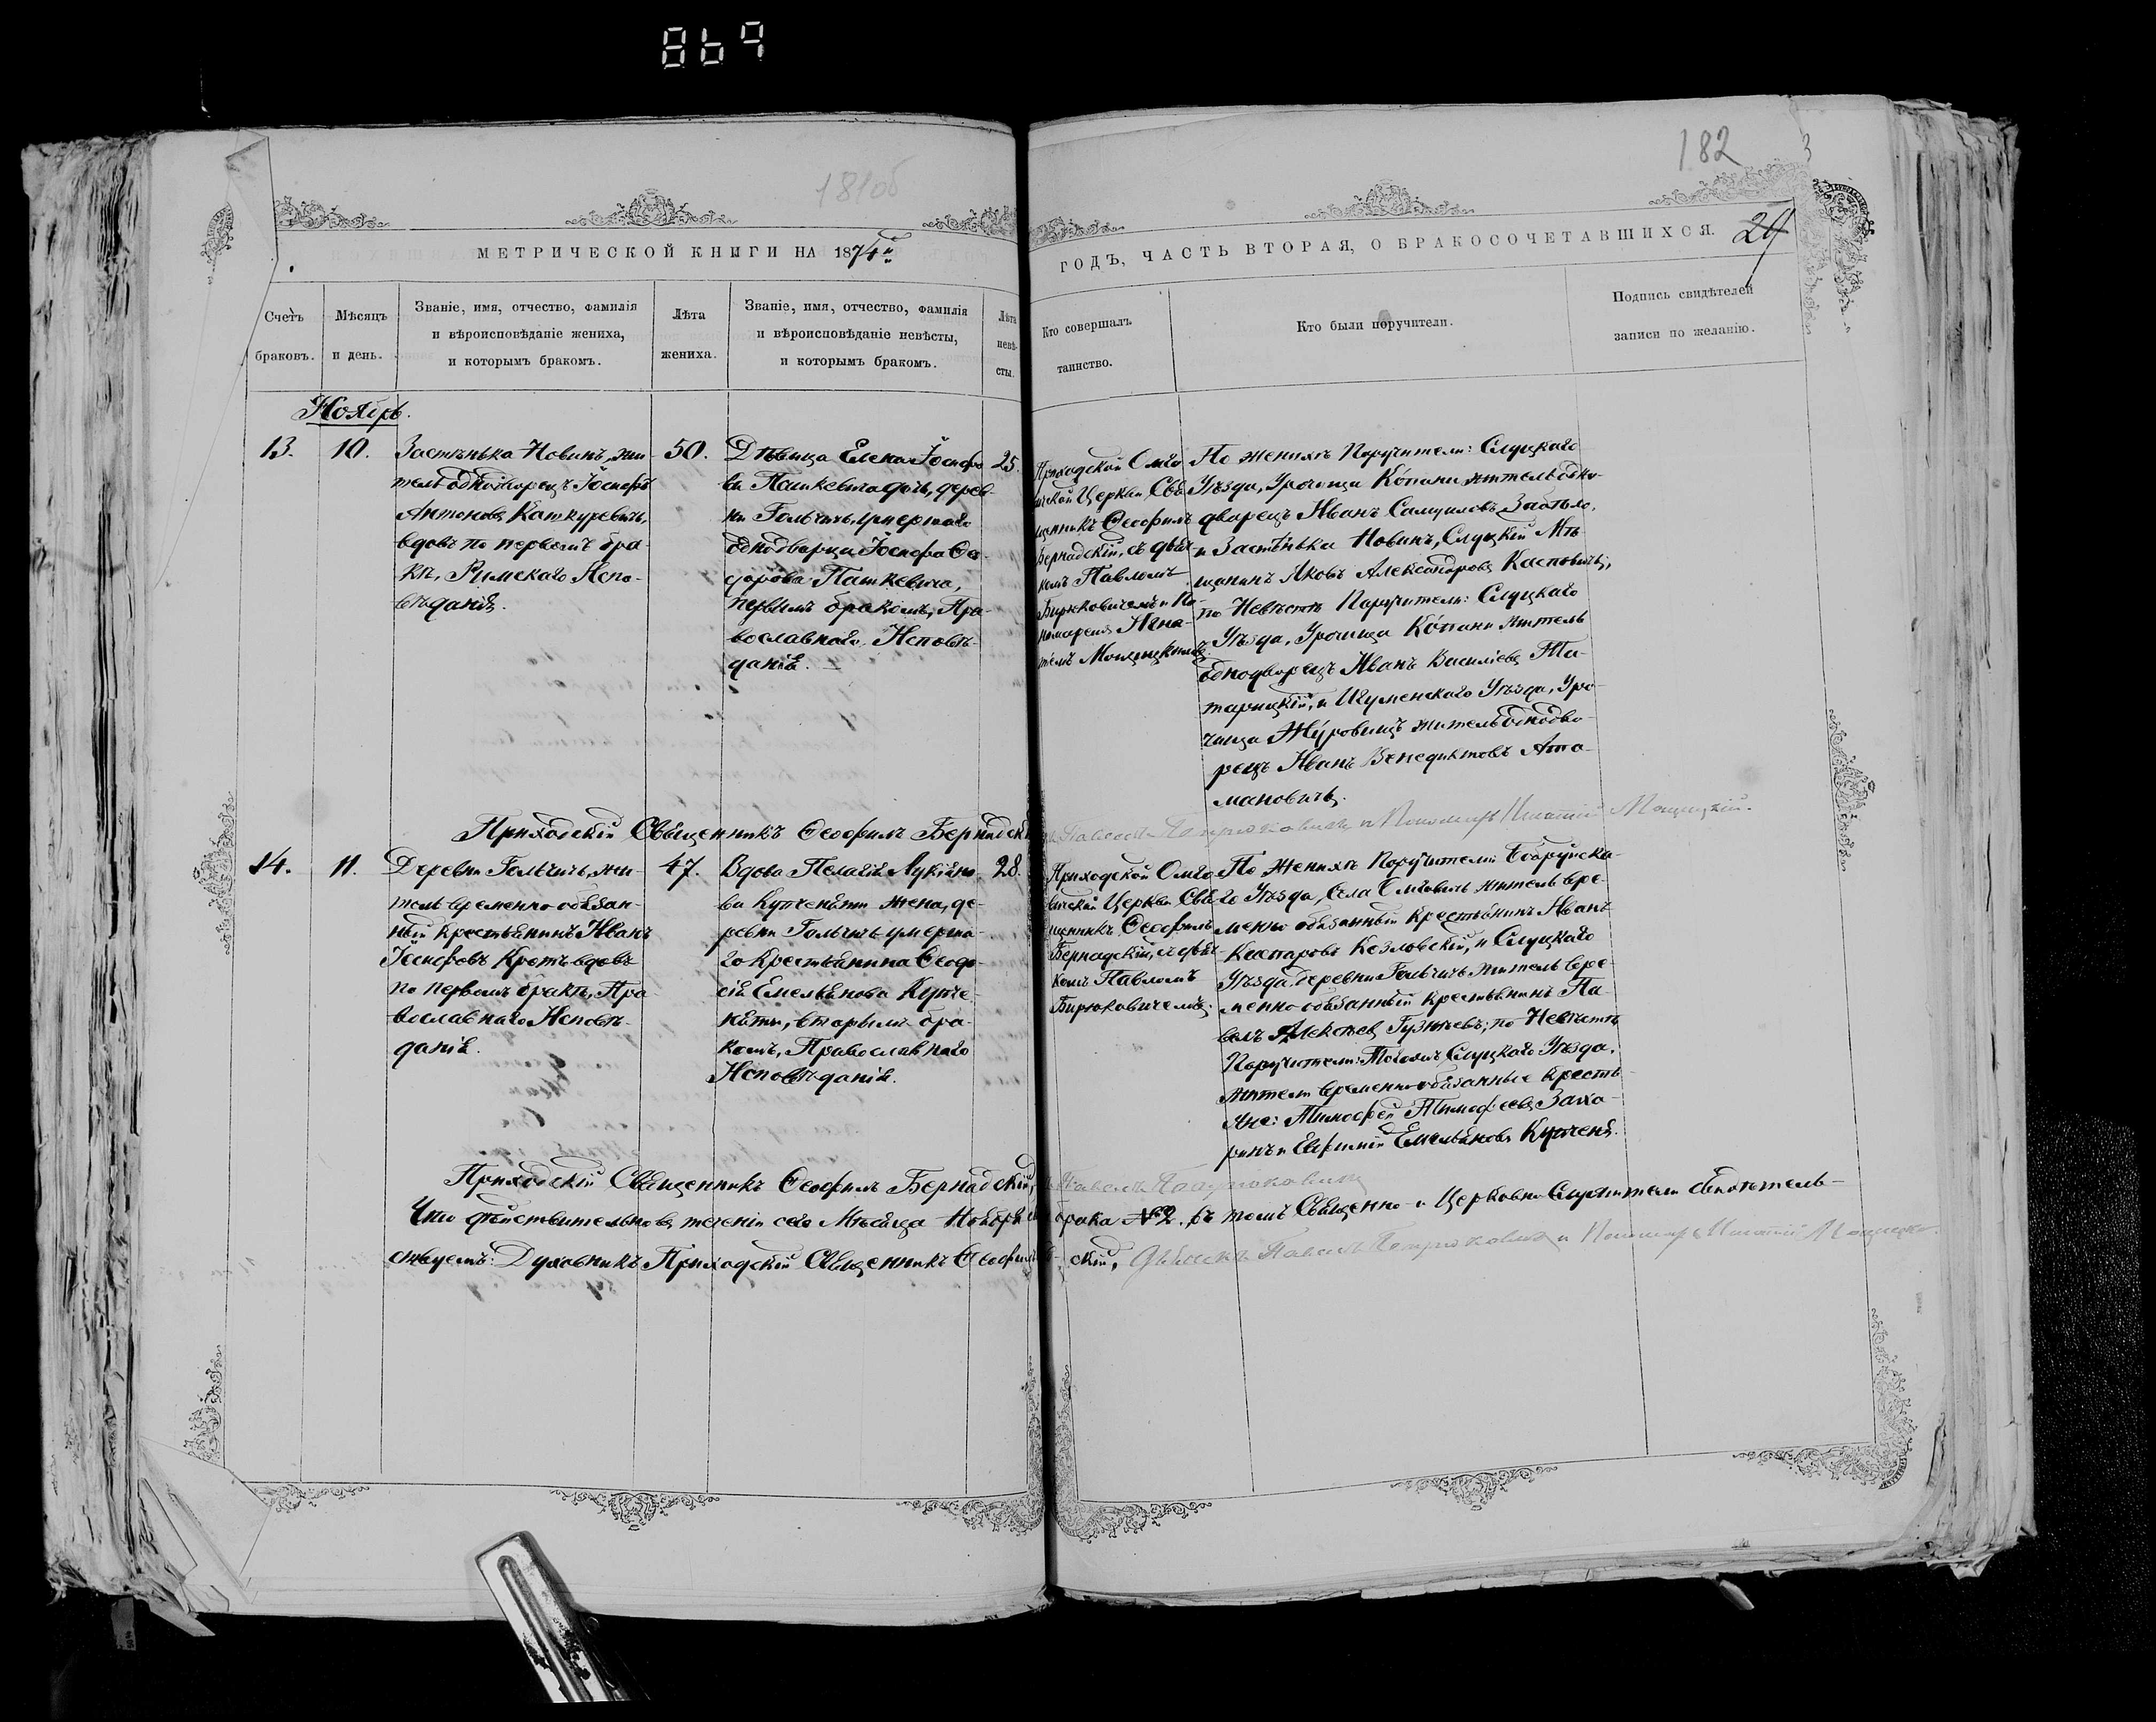 869
181об
182
3
МЕТРИЧЕСКОЙ КНИГИ НА 1874й
ГОДЪ, ЧАСТЬ ВТОРАЯ, О БРАКОСОЧЕТАВШИХСЯ.
24
Счетъ
браковъ.
Мѣсяцъ
и день.
Званіе, имя, отчество, фамилія
и вѣроисповѣданіе жениха,
и которымъ бракомъ.
Лѣта
жениха.
Званіе, имя, отчество, фамилія
и вѣроисповѣданіе невѣсты,
и которымъ бракомъ.
Лѣта
невѣ-
сты.
Кто совершалъ
таинство.
Кто были поручители.
Подпись свидѣтелей
записи по желанію.
Ноябрь.
13.
10.
Застѣнка Новинъ, жи-
тель однодворецъ Іосифъ
Антоновъ Кашкуревичъ,
вдовъ по первомъ бра-
кѣ, Римскаго Испо-
вѣданія.
50.
Дѣвица Елена Іосифо
ва Пашкевича дочь, дерев-
ни Гольчичъ, умершаго
однодворца Іосифа Ѳе-
дорова Пашкевича,
первымъ бракомъ, Пра-
вославнаго Исповѣ-
данія.
25.
Приходской Омго
вичской Церкви Свя
щенникъ Ѳеофилъ
Бернадскій, съ дьяч-
комъ Павломъ
Бирюковичемъ и По-
номаремъ Игна-
тіемъ Мощицкимъ.
По женихѣ Поручители: Слуцкаго
Уѣзда, Урочища Ко́пани житель одно-
дворецъ Иванъ Самуиловъ Заботло,
и Застѣнка Новинъ, Слуцкій Мѣ
щанинъ Яковъ Александровъ Касповичъ;
по Невѣстѣ Поручители: Слуцкаго
Уѣзда, Урочища Ко́пани житель
однодворецъ Иванъ Василіевъ Та-
тарицкій, и Игуменскаго Уѣзда, Уро-
чища Жу́ровищъ житель однодво-
рецъ Иванъ Венедиктовъ Ата-
мановичъ.
Приходскій Священникъ Ѳеофилъ Бернадскій
и Пономарь Игнатій Мощицкій.
14.
11.
Деревни Гольчичъ, жи-
тель временно обязан-
ный крестьянинъ Иванъ
Іосифовъ Кротъ вдовъ
по первомъ бракѣ, Пра
вославнаго Исповѣ-
данія.
47.
Вдова Пелагія Лукіяно-
ва Купченѣти жена, де-
ревни Гольчичъ умерша-
го крестьянина Ѳеодо-
сія Емельянова Купче-
няти, вторымъ бра-
комъ, Православнаго
Исповѣданія.
28.
Приходской Омго
вичской Церкви Свя
щенникъ Ѳеофилъ
Бернадскій, съ дьяч-
комъ Павломъ
Бирюковичемъ.
По женихѣ Поручители: Бобруйска-
го Уѣзда, Села Омговичъ житель вре-
менно обязанный крестьянинъ Иванъ
Каспаровъ Козловскій, и Слуцкаго
Уѣзда, деревни Гольчичъ житель вре-
менно обязанный крестьянинъ Па-
велъ Алексѣевъ Гузнѣевъ; по Невѣстѣ
Поручители: Тогожъ Слуцкаго Уѣзда,
жители временно обязанные кресть
яне: Тимофей Тимофеевъ Заха-
ринъ и Евфимій Емельяновъ Купченя.
Приходскій Священникъ Ѳеофилъ Бернадскій,
Что дѣйствительно въ теченіи сего Мѣсяца Ноября брака № 2. въ томъ Священно- и Церковно Служители свидѣтель-
ствуемъ: Духовникъ Приходскій Священникъ Ѳеофилъ скій, Дьячекъ Павелъ и Пономарь Игнатій